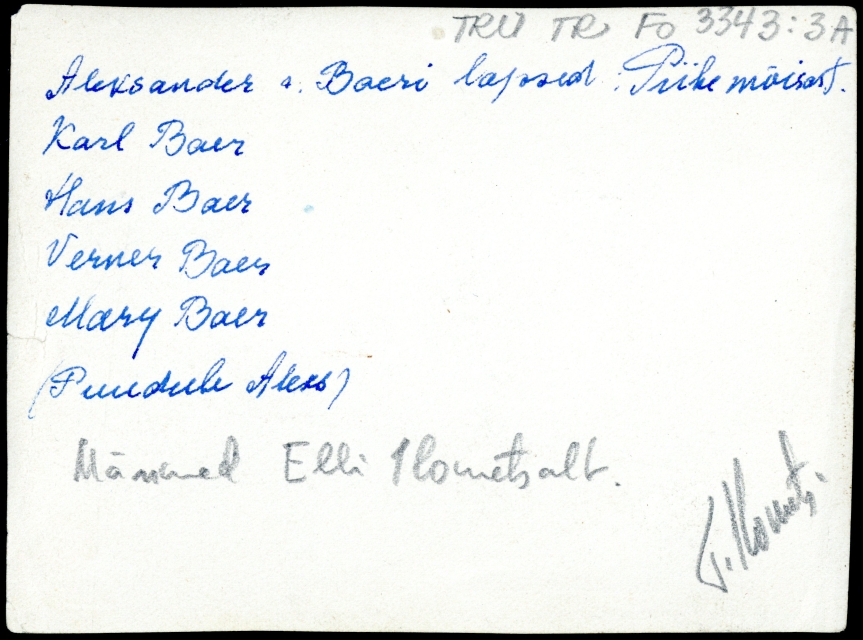 TRÜ TR Fo 3343:3A
Aleksander v. Baeri lapsed: Piibe mõisast.
Karl Baer
Hans Baer
Verner Baer
Mary Baer
(Puudub Aleks)
Elli Ilometsalt.